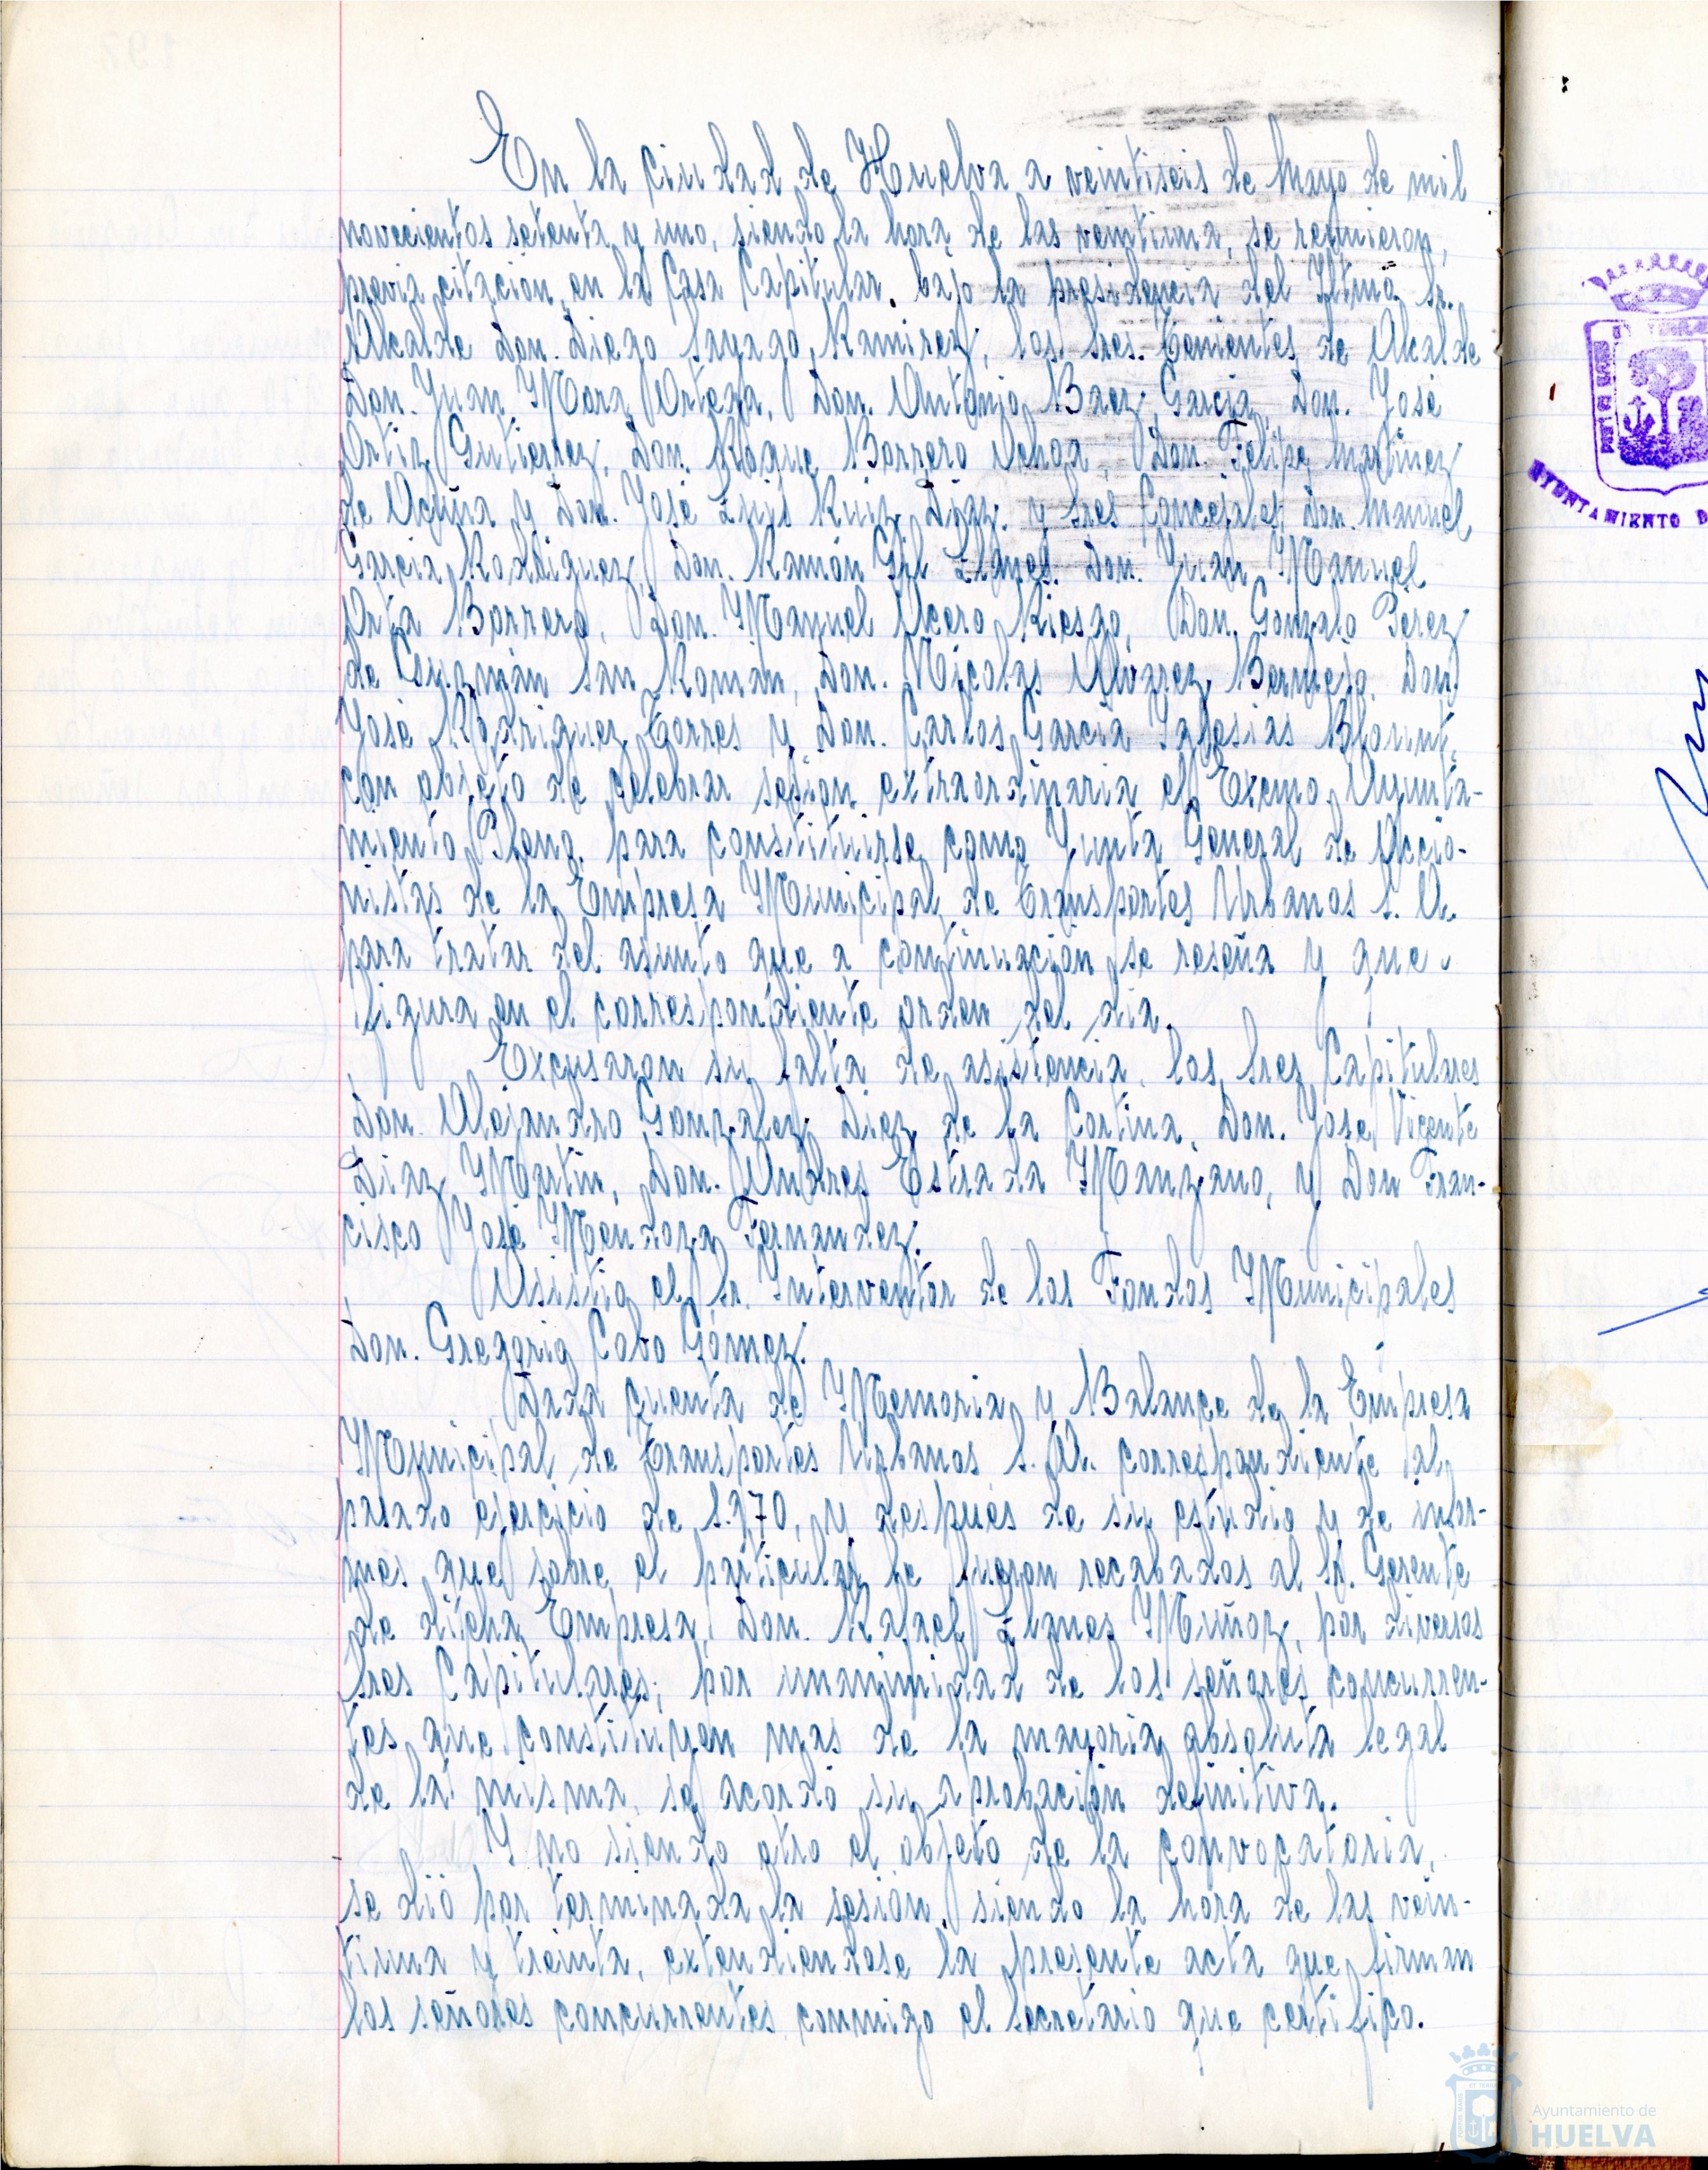 En la ciudad de Huelva a veintiseis de Mayo de mil
novecientos setenta y uno, siendo la hora de las veintiuna, se reunieron,
previa citación, en la Casa Capitular, bajo la presidencia del Iltmo. Sr.
Alcalde Don. Diego Sayago Ramirez, los Sres. Tenientes de Alcalde
Don. Juan Mora Ortega, Don. Antonio Baez Garcia, Don. José
Ortiz Gutierrez, Don. Roque Barrero Ochoa, Don. Felipe Martinez
de Acuña y Don. José Luis Ruiz Diaz. y Sres Concejales, Don. Manuel
Garcia Rodriguez, Don. Ramón Gil Llanes. Don. Juan Manuel
Orta Borrero, Don. Manuel Acero Riesgo, Don. Gonzalo Pérez
de Guzmán San Román, Don. Nicolas Alvarez Bermejo. Don
José Rodriguez Torres y Don. Carlos Garcia Iglesias
con objeto de celebrar sesion extraordinaria el Excmo. Ayunta-
miento Pleno. para constituirse como Junta General de Accio-
nistas de la Empresa Municipal de Transportes Urbanos S. A.
para tratar del asunto que a continuación se reseña y que
figura en el correspondiente orden del dia.
Excusaron su falta de asistencia, los Sres Capitulares
Don. Alejandro Gonzalez Diez de la Cortina, Don. Jose Vicente
Diaz Martin, Don. Andres Estrada Manzano, y Don Fran-
cisco José Mendoza Fernandez.
Asistio el Sr. Interventor de los Fondos Municipales
Don. Gregorio Cobo Gómez.
Dada cuenta de Memoria y Balance de la Empresa
Municipal de Transportes Urbanos S. A. correspondiente al
pasado ejercicio de 1.970, y después de su estudio y de infor-
mes que sobre el particular le fueron recabados al Sr. Gerente
de dicha Empresa, Don. Rafael Llanes Muñoz, por diversos
Sres Capitulares; por unanimidad de los señores concurren-
tes que constituyen mas de la mayoria absoluta legal
de la misma, se acordó su aprobación definitiva.
Y no siendo otro el objeto de la convocatoria,
se dió por terminada la sesion, siendo la hora de las vein-
tiuna y treinta, extendiendose la presente acta que firman
los señores concurrentes conmigo el Secretario que certifico.
AYUNTAMIENTO D
Ayuntamiento de
HUELVA